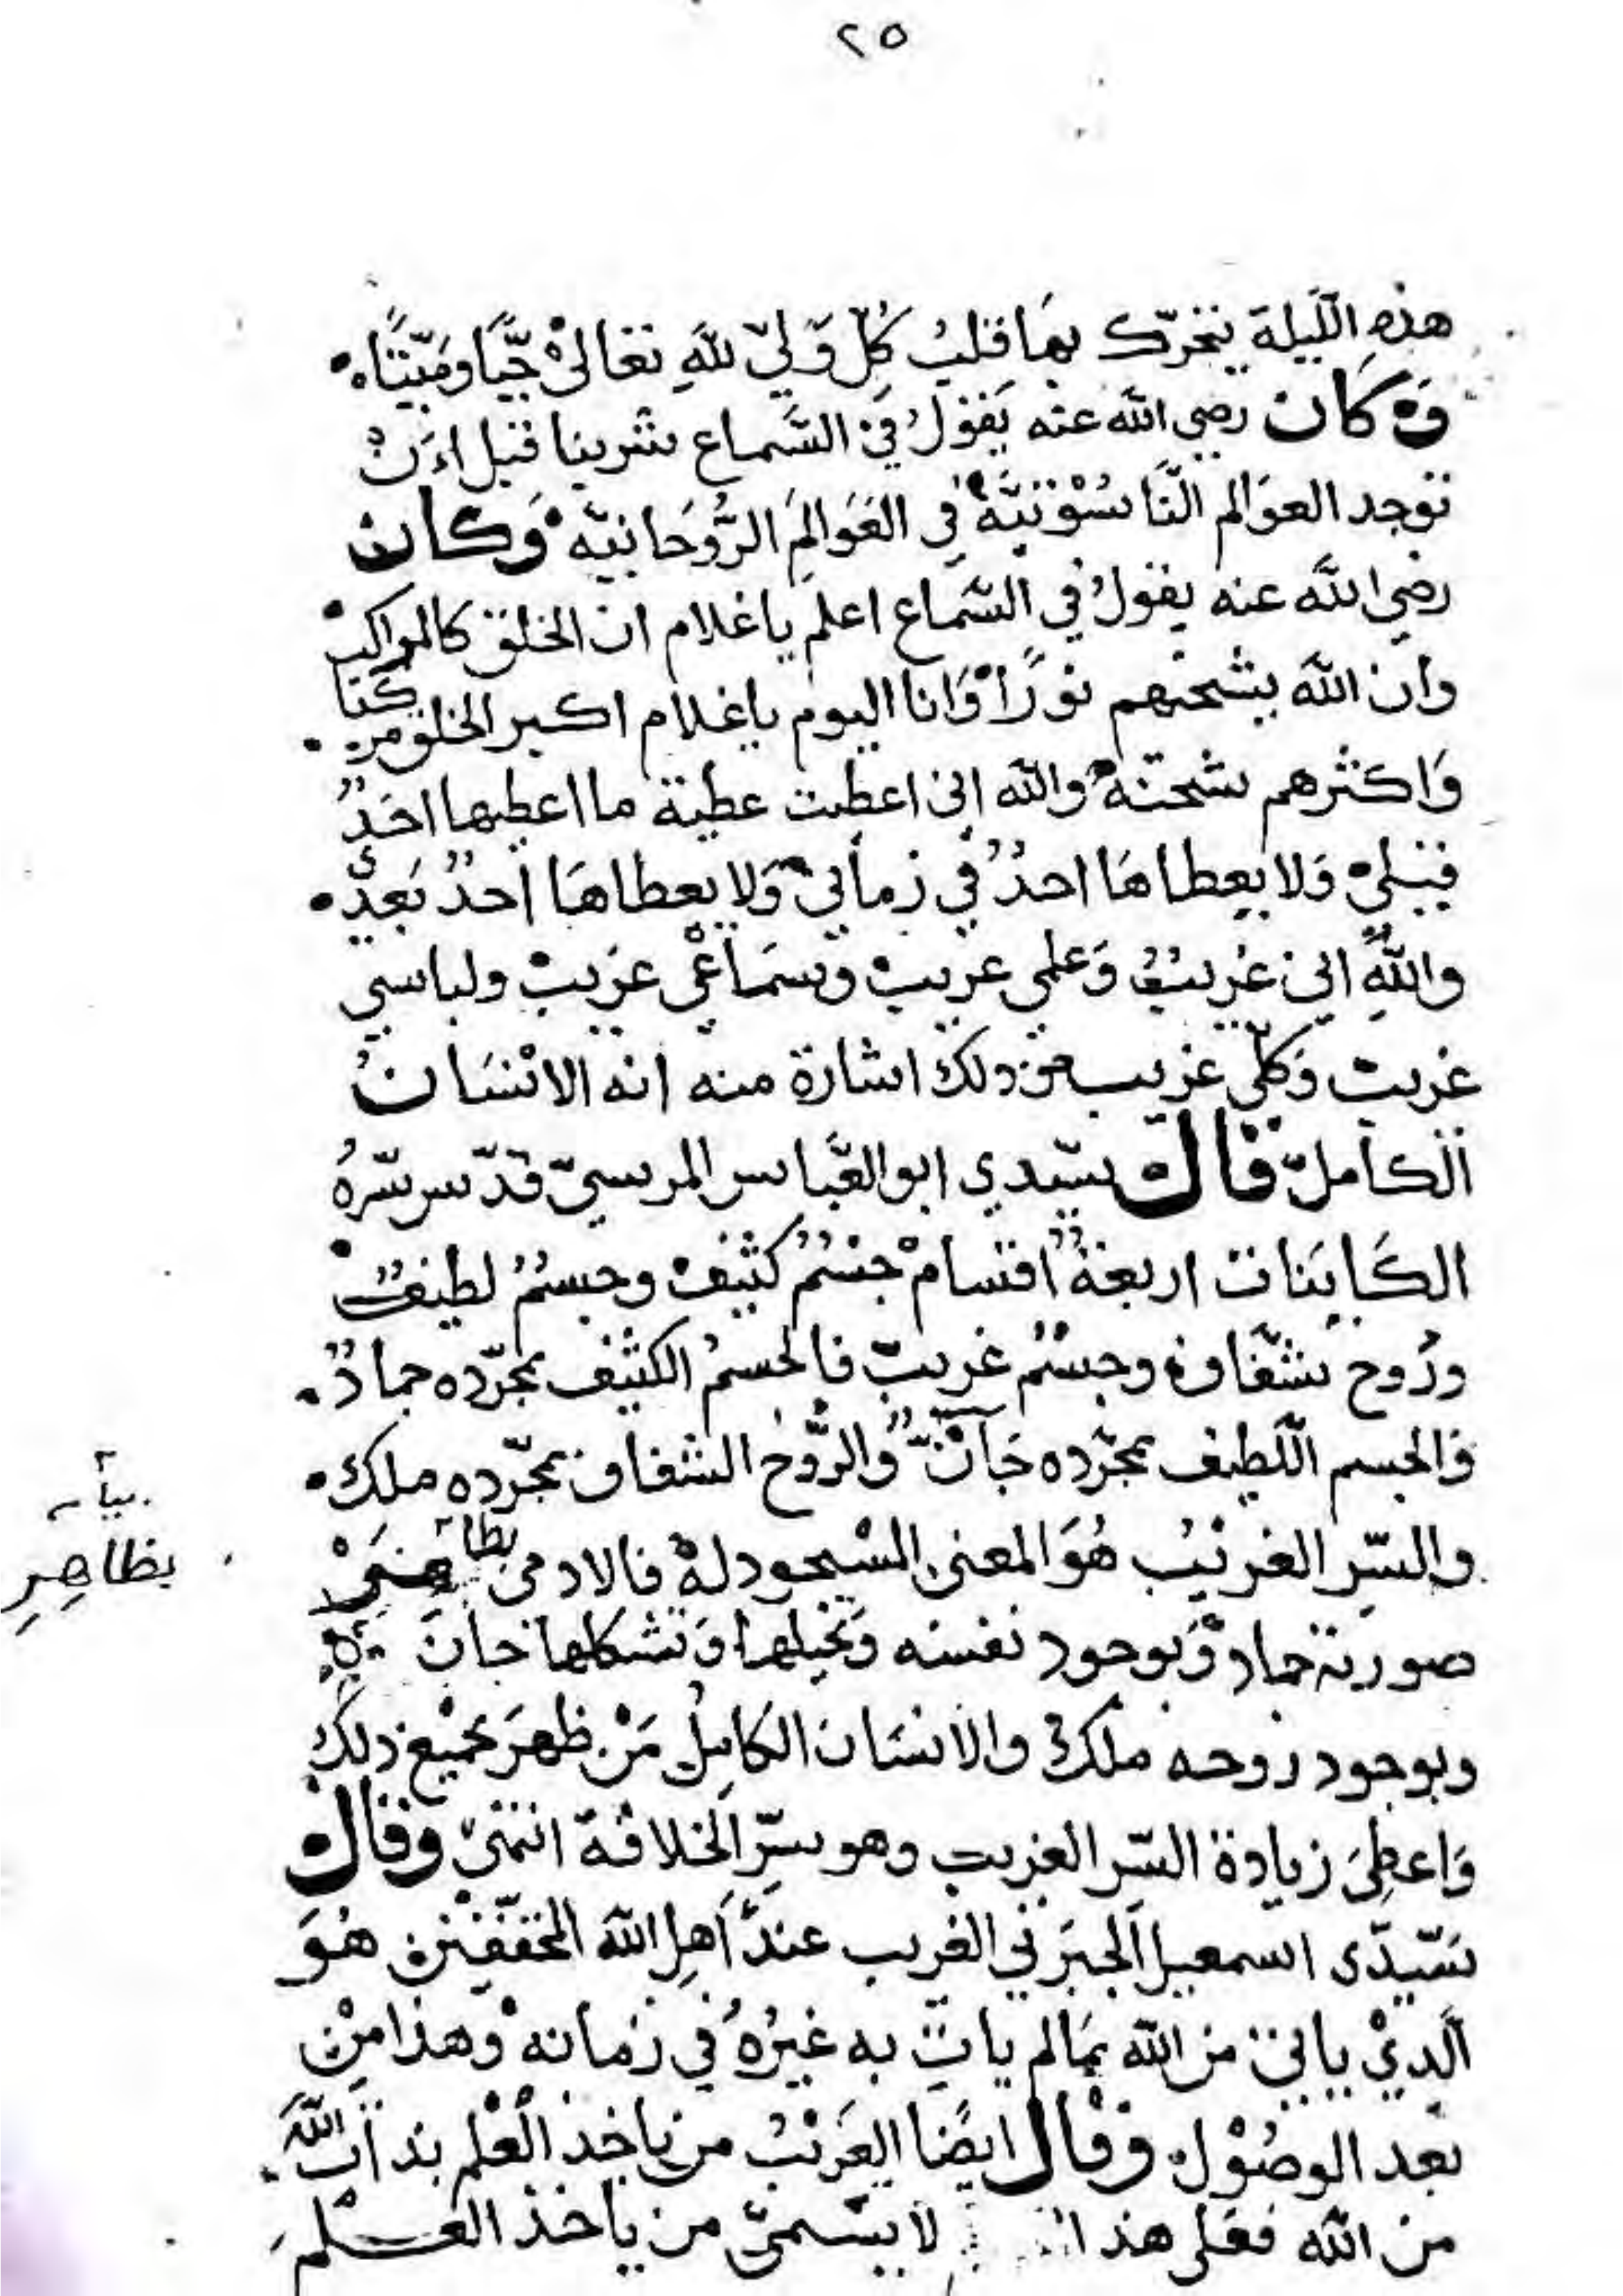 ٢٥
هذهِ اللّيلة يتحرّك بهَا قلبُ كُلّ وَليّ للّهِ تعَالىْ حَيًّا ومَيّتًا
وَكَان رضي الله عنه يَقولُ في السَّماع شربنا قبل اَنْ
توجد العوَالم النَّاسُوْتيَّةْ في العَوَالمَ الرُّوحَانيّه وَكان
رضي اللَّه عنه يقولُ في السَّماع اعلم ياغلام ان الخلق كالمراكبْ
وان اللّه يشحنهم نورًا وَانا اليوم ياغلام اكبر الخلق مركبًا
وَاكثرهم شحنةً والله اني اعطيت عطية ما اعطيها احَدٌ
قبليْ وَلا يعطاهَا احدٌ في زماني وَلا يعطاهَا احدٌ بَعدي
واللّهِ اني غريبٌ وَعلمي غريبْ وسمَاعي غريبْ ولباسي
غريبْ وَكلّي غريب من ذلك اشارة منه انه الانْسَانُ
الكامل قالْ سيّدي ابو العبّاس المرسيّ قدّس سرّهُ
الكَاينَات اربعةُ اقسام جسْمٌ كثيفْ وجسمٌ لطيفٌ
ورُوح شفّاف وجسْمٌ غريبْ فالجسمُ الكثيف بمجرّده جمادٌ
وَالجسم اللّطيف بمجرّده جَآنٌّ والرُّوح الشفاف بمجرّده ملك
والسّر الغريْبُ هُوَ المعنى المسْجود لهْ فالادمي بظاهر
صورية جماد وَبوجود نفسه وَتخيلها وَتشكلها جان
وبوجود روحه ملكْ والانسَان الكامِلُ مَنْ ظهرَ بجميْع ذلك
وَاعطِىَ زيادة السّر الغريب وهو سرّ الخلافة انتهىْ وقالْ
سَيّدى اسمعيل الجبَرتي الغريب عندَ اَهل الله المحققيْن هُوَ
الَّذيْ ياتي من الله بمَا لم ياتِ به غيْرهُ في زمَانه وهذا مِنْ
بعد الوصُوْل وقال ايضًا الغَريْبُ من ياخذ العْلم بذات اللَّه
من الله فعلى هذا لا يسّمىّ من ياخذ العلم
بيان
بظاهِرِ